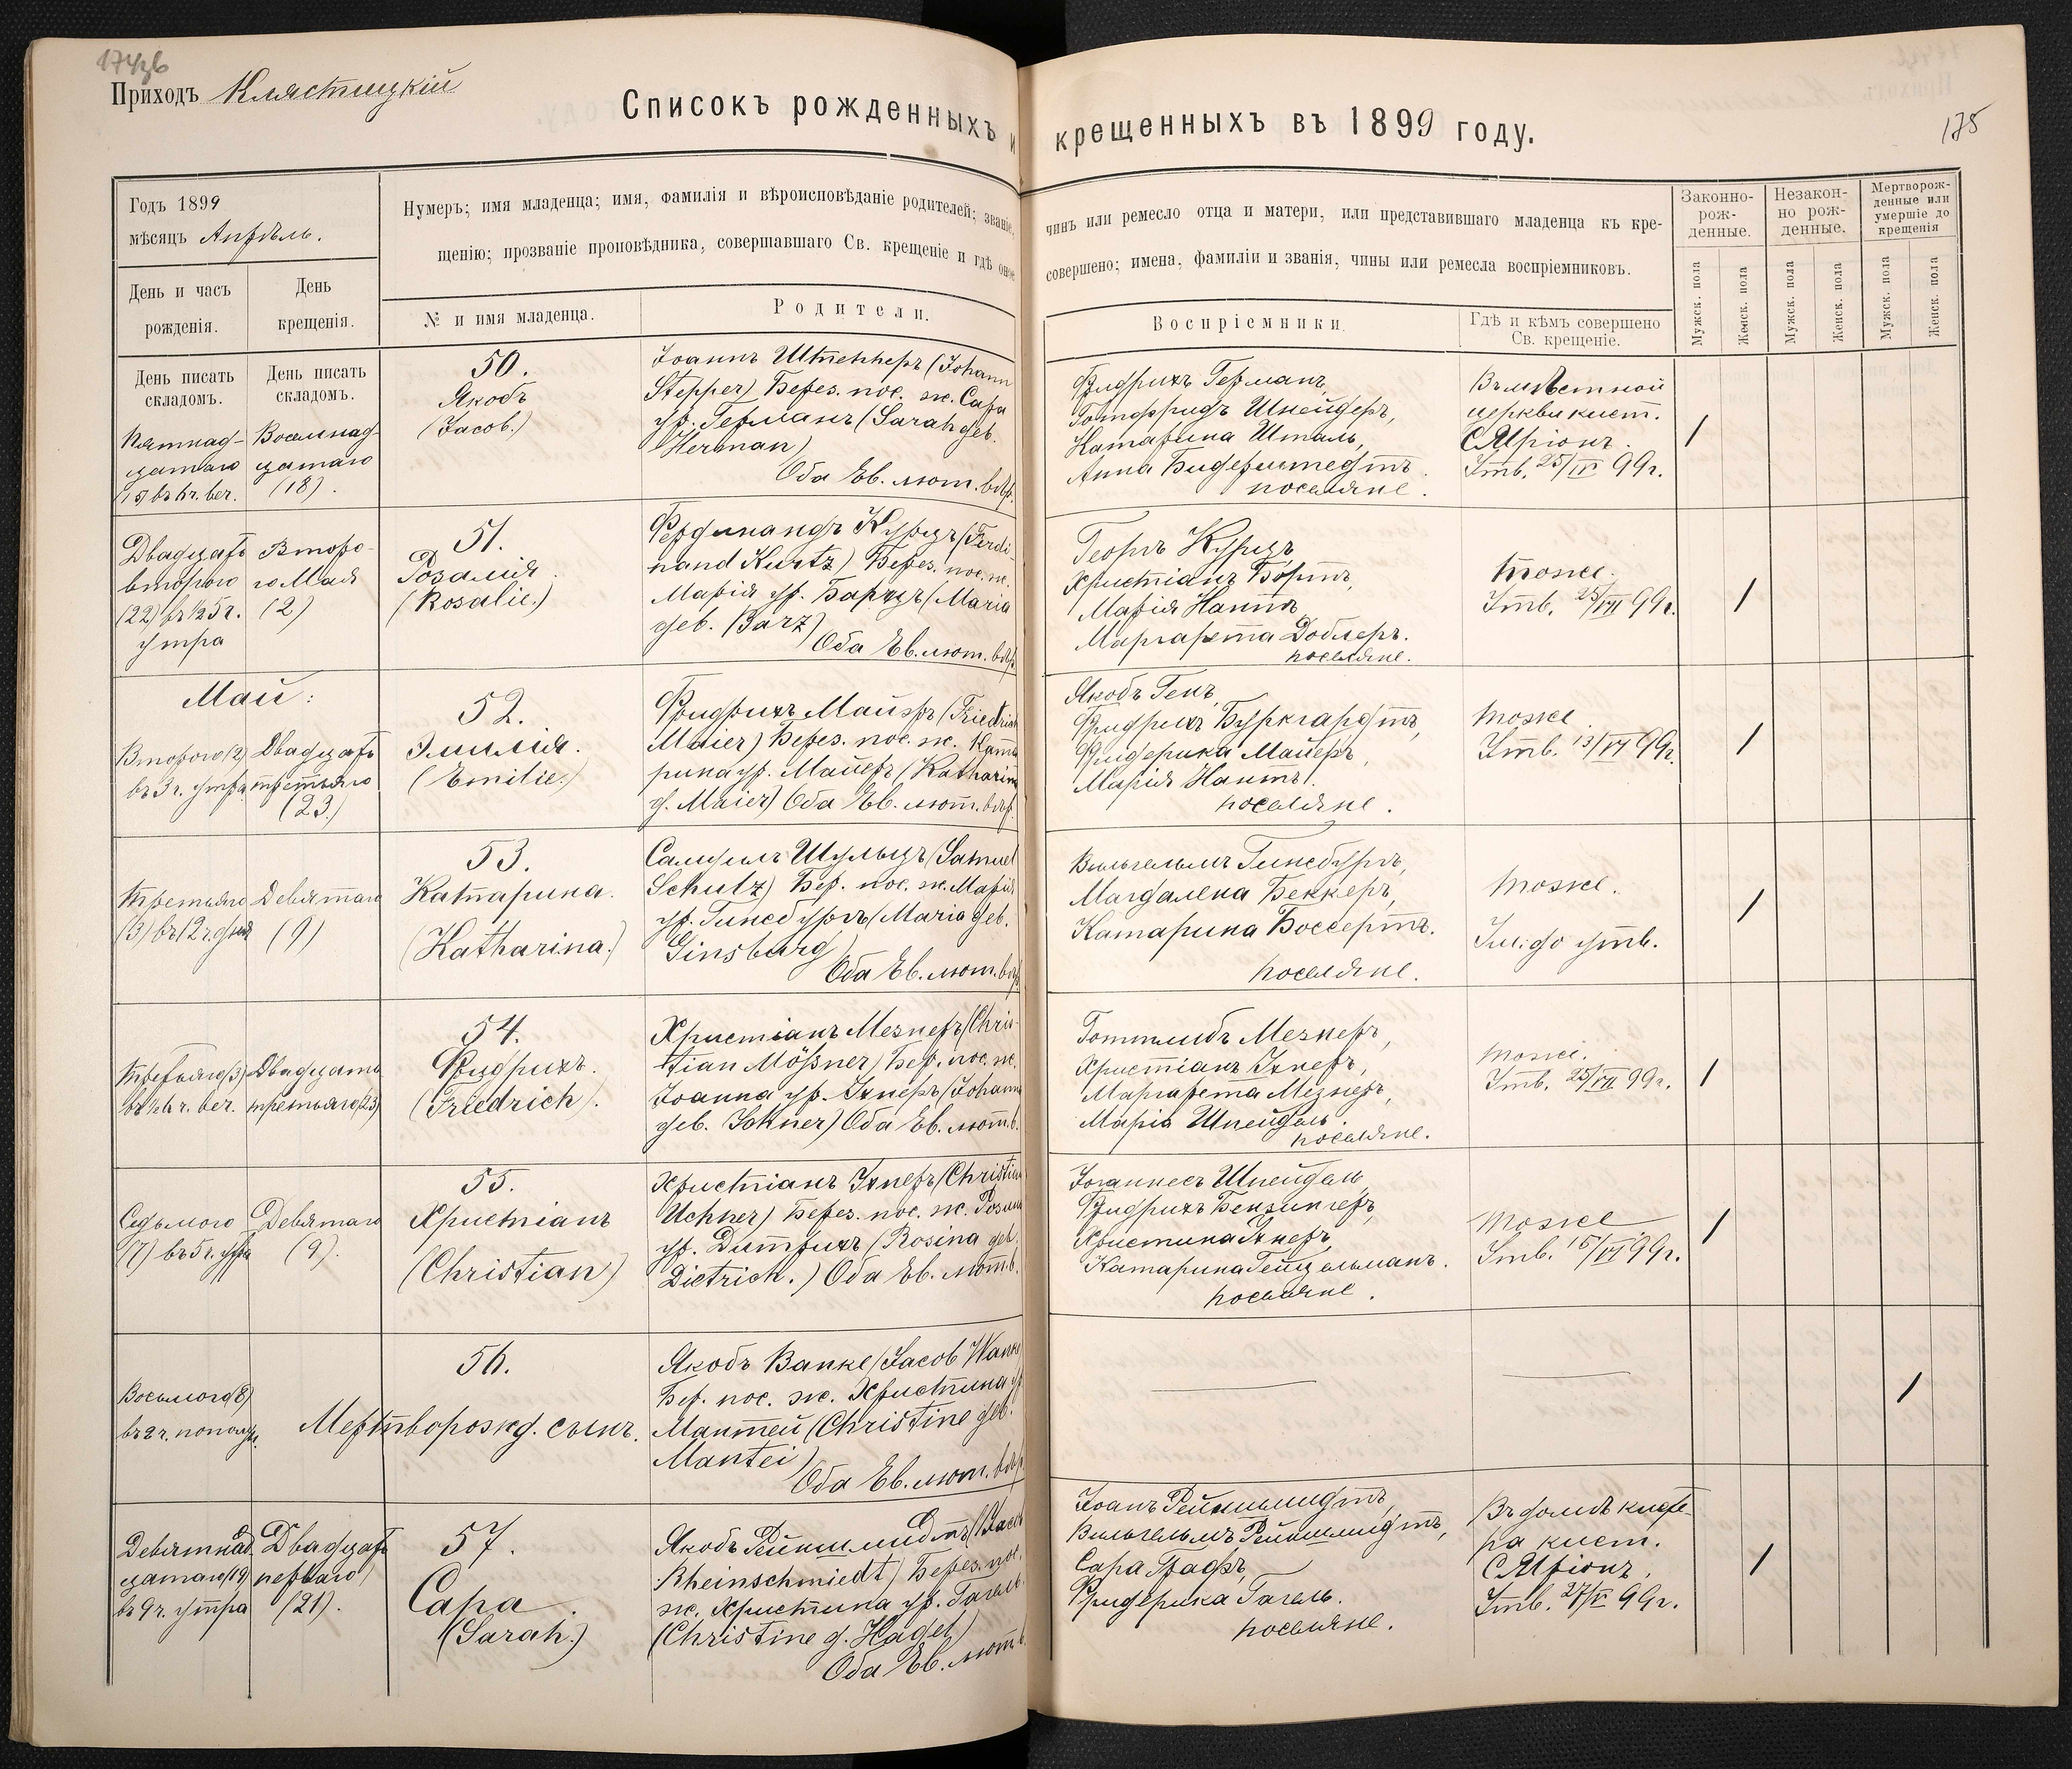 174об
Приходъ Клястицкій
Списокъ рожденныхъ и крещенныхъ въ 1899 году.
175
Годъ 1899
мѣсяцъ Апрѣль.
Нумеръ; имя младенца; имя, фамилія и вѣроисповѣданіе родителей; званіе, чинъ или ремесло отца и матери, или представившаго младенца къ кре-
щенію; прозваніе проповѣдника, совершавшаго Св. крещеніе и гдѣ оное совершено; имена, фамиліи и званія, чины или ремесла воспріемниковъ.
Законно-
рож-
денные.
Незакон-
но рож-
денные.
Мертворож-
денные или
умершіе до
крещенія
День и часъ
рожденія.
День
крещенія.
№ и имя младенца.
Родители.
Воспріемники.
Гдѣ и кѣмъ совершено
Св. крещеніе.
Мужск. пола
Женск. пола
Мужск. пола
Женск. пола
Мужск. пола
Женск. пола
День писать
складомъ.
День писать
складомъ.
Пятнад-
цатаго
(15) въ 6 ч. веч.
Восемнад-
цатаго
(18).
50.
Якобъ
(Jacob.)
Іоаннъ Штепперъ (Johann
Stepper) Берез. пос. ж. Сара
ур. Германъ (Sarah geb.
Herman)
Оба Ев. лют. вѣр.
Фридрихъ Германъ,
Готфридъ Шнейдеръ,
Катарина Шталь,
Анна Бидерштедтъ.
поселяне.
Въ мѣстной
церкви кист.
Утв. 25/IV 99 г.
/
Двадцать
второго
(22) въ ½5 ч.
утра
Второ-
го Мая
(2)
51.
Розалія.
(Rosalie.)
Фердинандъ Курцъ (Ferdi-
nand Kurtz) Берез. пос. ж.
Марія ур. Барцъ (Maria
geb. Barz)
Оба Ев. лют. вѣр.
Георгъ Курцъ
Христіанъ Бортъ,
Марія Нантъ,
Маргарета Доблеръ.
поселяне.
Тоже.
Утв. 25/VII 99 г.
/
Май:
Второго (2)
въ 3 ч. утра
Двадцать
третьяго
(23.)
52.
Эмилія.
(Emilie.)
Фридрихъ Майэръ (Friedrich
Maier) Берез. пос. ж. Ката-
рина ур. Майеръ (Katharina
g. Maier) Оба Ев. лют. вѣр.
Якобъ Генъ,
Фридрихъ Буркгардтъ,
Фридерика Майеръ,
Марія Нантъ.
поселяне.
тоже.
Утв. 13/VI 99 г.
/
Третьяго
(3) въ 12 ч. дня
Девятаго
(9)
53.
Катарина.
(Katharina.)
Самуилъ Шульцъ (Samuel
Schulz) Бер. пос. ж. Марія
ур. Гинсбургъ (Maria geb.
Ginsburg)
Оба Ев. лют. вѣр.
Вильгельмъ Гинсбургъ,
Магдалена Беккеръ,
Катарина Боссертъ.
поселяне.
тоже.
Ум. до утв.
/
Третьяго (3)
въ ½6 ч. веч.
Двадцать
третьяго (23)
54.
Фридрихъ.
(Friedrich).
Христіанъ Мезнеръ (Chris-
tian Mößner) Бер. пос. ж.
Іоанна ур. Ихнеръ (Johanna
geb. Ichner) Оба Ев. лют. в.
Готтлибъ Мезнеръ,
Христіанъ Ихнеръ,
Маргарета Мезнеръ,
Марія Шнейдель.
поселяне.
тоже.
Утв. 25/VII 99 г.
/
Седьмого
(7) въ 5 ч. утра
Девятаго
(9).
55.
Христіанъ
(Christian)
Христіанъ Ихнеръ (Christian
Uchner) Берез. пос. ж. Розина
ур. Дитрихъ (Rosina geb.
Dietrich.) Оба Ев. лют. в.
Іоганнесъ Шнейдель,
Фридрихъ Бензингеръ,
Христина Ихнеръ,
Катарина Гейцельманъ.
поселяне.
тоже
Утв. 16/VI 99 г.
/
Восьмого (8)
въ 2 ч. пополуд.
56.
Мертворожд. сынъ.
Якобъ Ванке (Jacob Wanke
Бер. пос. ж. Христина ур.
Мантей (Christine geb.
Mantei)
Оба Ев. лют. вѣр.
/
Девятнад-
цатаго (19)
въ 9 ч. утра
Двадцать
перваго
(21).
57.
Сара.
(Sarah.)
Якобъ Рейншмидтъ (Jacob
Rheinschmiedt) Берез. пос.
ж. Христина ур. Гагель
(Christine g. Hagel)
Оба Ев. лют. в.
Іоанъ Рейншмидтъ,
Вильгельмъ Рейншмидтъ,
Сара Графъ,
Фридерика Гагель.
поселяне.
Въ домѣ кисте-
ра кист.
Утв. 27/V 99 г.
/